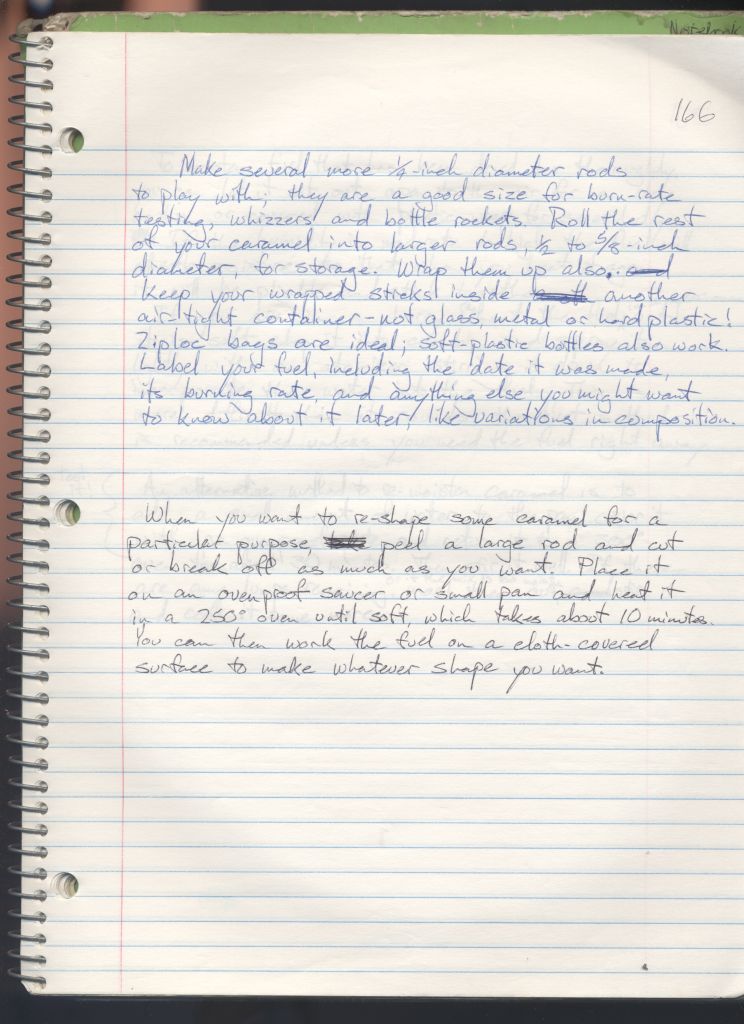 Notebook
166
Make several more 1/4-inch diameter rods
to play with; they are a good size for burn-rate
testing, whizzers and bottle rockets. Roll the rest
of your caramel into larger rods, 1/2 to 5/8-inch
diameter, for storage. Wrap them up also.
Keep your wrapped sticks inside another
air-tight container - not glass, metal or hard plastic!
Ziploc bags are ideal; soft-plastic bottles also work.
Label your fuel, including the date it was made,
its burning rate, and anything else you might want
to know about it later, like variations in composition.
When you want to re-shape some caramel for a
particular purpose, peel a large rod and cut
or break off as much as you want. Place it
on an ovenproof saucer or small pan and heat it
in a 250° oven until soft, which takes about 10 minutes.
You can then work the fuel on a cloth-covered
surface to make whatever shape you want.